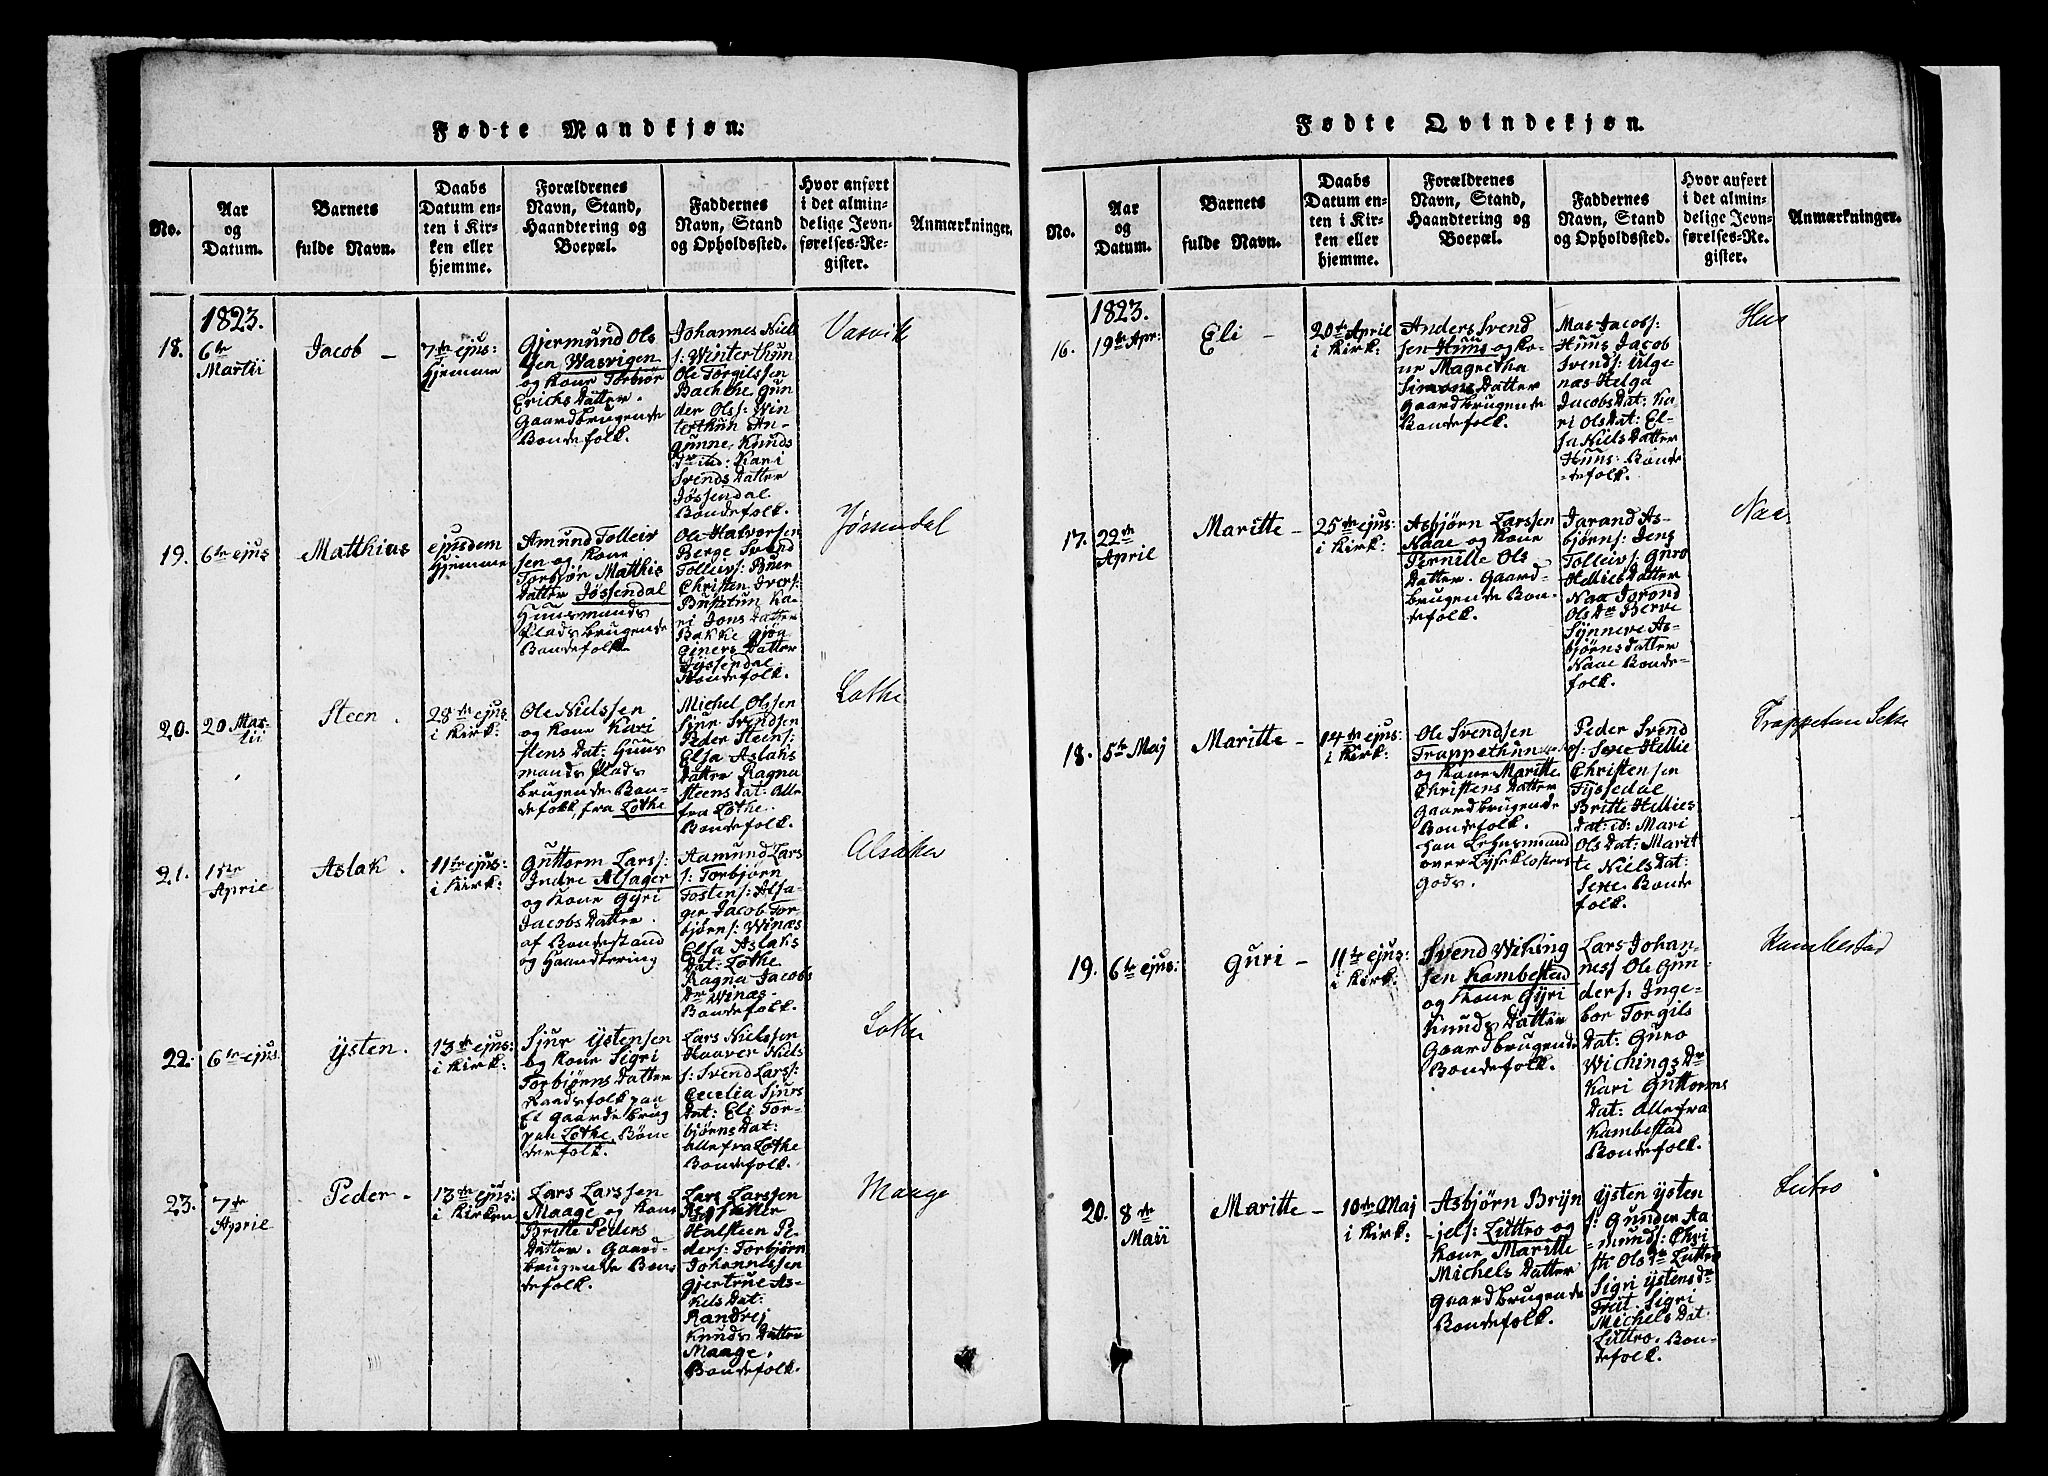 Fødte Mandkjøn.
No.
Aar
og
Datum.
Barnets
fulde Navn.
Daabs
Datum en-
ten i Kir-
ken eller
hjemme.
Forældrenes
Navn, Stand,
Haandtering og
Boepæl.
Faddernes
Navn, Stand
og Opholdssted.
Hvor anført
i det almin-
delige Jevn-
førelses-Re-
gister.
Anmærkninger.
1823.
18.
6te
Martii
Jacob
7de ejus:
Hjemme
Gjermund Ols
sen Wasvigen
og Kone Torbiør
Erichs Datter.
Gaardbrugende
Bondefolk.
Johannes Niel
s: Winterthun
Ole Torgilssen
Bachche Gun
der Ols: Win
terthun An-
gunne Knuds
Dr ibid: Kari
Svends Datter
Jøssendal
Bondefolk.
Vasvik
19.
6te ejus
Matthias
ejusdem
Hjemme
Amund Tolleiv
sen og Kone
Torbjør Matthis
Datter Jøssendal
Huusmands
Plads brugende
Bondefolk
Ole Halvorsen
Berge Svend
Tolleivs: Buer
Christen Ivers:
Bustetun Ka-
ri Jons Datter
Bakke
Datter
Jøssendal
Bondefolk.
Jøssendal
20.
20. Mar-
tii
Steen
28de ejus
i Kirk:
Ole Nielssen
og Kone Kari
Stens Dat: Huus
mands Plads
brugende Bon-
defolk, fra Lothe
Michel Olssen
Siur Svendsen
Peder Steens:
Elsa Aslaks
Datter Ragna
Steens Dat: Alle
fra Lothe.
Bondefolk.
Lothe
21.
1ste
Aprie
Aslak
11te ejus:
i Kirk:
Guttorm Lars:
Indre Alsager
og Kone Gyri
Jacobs Datter
af Bondestand
og Haandtering
Aamund Lars
s: Torbjørn
Tostens: Alsa-
ger Jacob Tor-
bjørns: Winæs
Elsa Aslaks
Dat: Lothe
Ragna Jacobs
Dr Winæs.
Bondefolk.
Alsaker
22.
6te ejus
Ysten
13de ejus:
i Kirk:
Sjur Ystensen
og Kone Sigri
Torbjørns Datter
Raadsfolk paa
Et Gaardebrug
paa Lothe. Bøn-
derfolk.
Lars Nielssen
Haaver Niels
s: Svend Lars:
Cecelia Sjurs
Dat: Eli Tor-
bjørns Dat:
Alle fra Lothe
Bondefolk.
Lothe
23.
7de
Aprie
Peder
13de ejus:
i Kirken
Lars Larssen
Maage og Kone
Britte Peders
Datter. Gaard-
brugende Bon-
defolk.
Lars Larssen
Halsteen Pe-
ders: Torbjørn
Johannessen
Gjertrue As-
kels Dat:
Randvej
Knuds Datter
Maage.
Bondefolk.
Maage
Fødte Qvindekjøn.
No.
Aar
og
Datum.
Barnets
fulde Navn.
Daabs
Datum en-
ten i Kir-
ken eller
hjemme.
Forældrenes
Navn, Stand,
Haandtering og
Boepæl.
Faddernes
Navn, Stand
og Opholdssted.
Hvor anført
i det almin-
delige Jevn-
førelses-Re-
gister.
Anmærkninger.
1823.
16.
19de Apr:
Eli
20de April
i Kirk:
Anders Svend
sen Huus og Ko-
ne Magretha
Simons Datter
Gaardbrugende
Bondefolk.
Mas Jacobs:
Huus Jacob
Svends: Ulge-
næs Helga
Jacobs Dat: Ka-
ri Ols Dat: El-
sa Niels Datter
Huus. Bonde-
defolk.
Hus
17.
22de
April
Maritte
25de ejus:
i Kirk:
Asbjørn Larssen
Naae og Kone
Pernille Ols
Datter. Gaard-
brugende Bon-
defolk.
Jarand As-
bjørns: Jens
Tolleivs: Guro
Hellies Datter
Naa Jorond
Ols Dr Berve
Synneve As-
bjørns Datter
Naae Bonde-
folk.
Naa
18.
5te Maj
Maritte
14de ejus:
i Kirk:
Ole Svendsen
Trappethun
og Kone Maritte
Christens Datter
Gaardbrugende
Bondefolk.
Han Lehnsmand
over Lyseklosters
Gods.
Peder Svend
s: Sexe Hellie
Christensen
Tyssedal
Britte Hellies
Dat: id: Mari
Ols Dat: Marit
te Niels Dat:
Sexe. Bonde
folk.
Trappetun Sekse
19.
6te ejus:
Guri
11te ejus:
i Kirk:
Svend Wiking
sen Kambestad
og Kone Gyri
Knuds Datter
Gaardbrugende
Bondefolk.
Lars Johan-
ness Ole Gun-
ders: Inge-
bor Torgils
Dat: Guro
Wichings Dr
Kari Guttorms
Dat: Alle fra
Kambestad
Bondefolk.
Kambestad
20.
8de
Maii
Maritte
10de Maj
i Kirk:
Asbjørn Bryn
jels: Luttro og
Kone Maritte
Michels Datter
Gaardbrugende
Bondefolk.
Ysten Ysten
s: Gunder Aa
munds: Chri
sti Ols Dr Luttro
Sigri Ystens Dr
Sigri
Michels Dat:
Luttro. Bon-
defolk.
Lutro